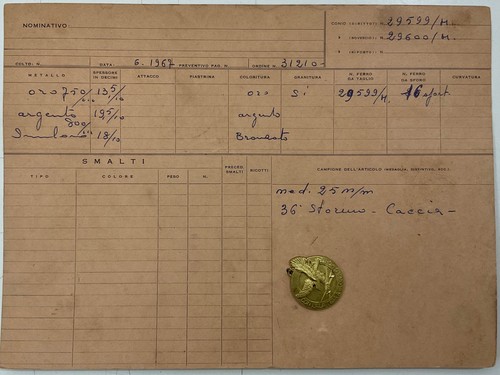 NOMINATIVO:
CONIO (DIRITTO) N. 29599/M.
» (ROVESCIO) » 29600/M.
» (RIPARTO) »
COLTO: G. DATA: 6. 1967 PREVENTIVO PAG. N. ORDINE N. 31210-
METALLO SPESSORE IN DECIMI ATTACCO PIASTRINA COLORITURA GRANITURA N. FERRO DA TAGLIO N. FERRO DA SFORO CURVATURA
oro 750/000 13,5/10 oro Sì 29599/M. 16 sfort.
argento 800/000 19,5/10 argento
18/10 Bronzato
SMALTI
TIPO COLORE PESO N. PREZZO SMALTI RICOTTI
CAMPIONE DELL'ARTICOLO (MEDAGLIA, DISTINTIVO, ECC.)
med. 25 m/m
36° Stormo - Caccia -